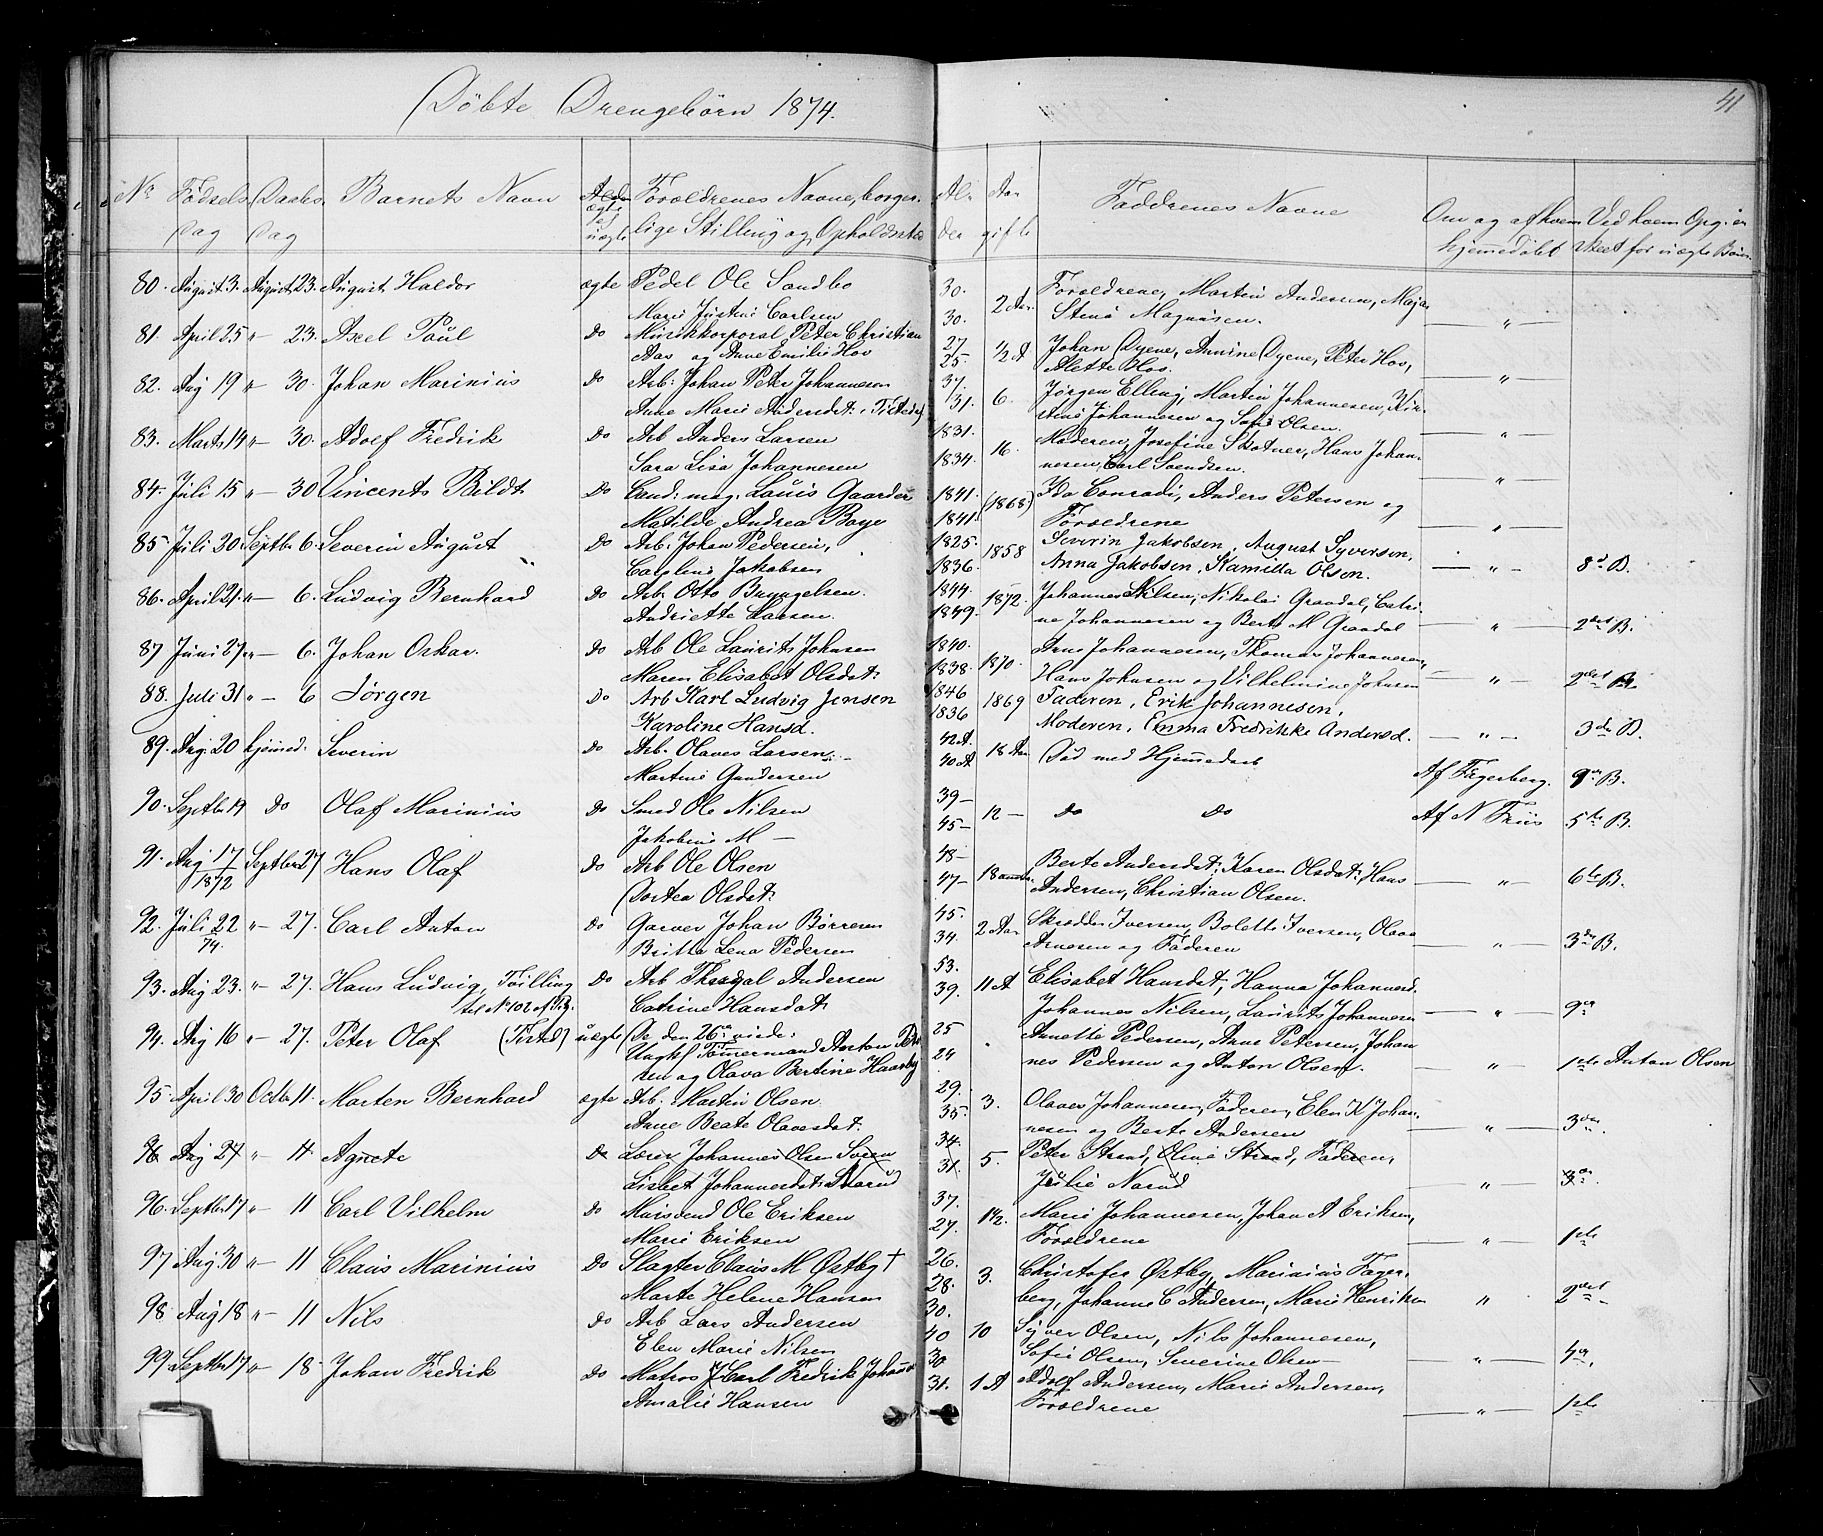 Döbte Drengebörn 1874.
41
No Födsels Dag Daabs Dag Barnets Navn ægte uægte Forældrenes Navne, borgerlige Stilling og Opholdsted
Alder Aar gifte Faddrenes Navne Om og af hvem hjemmedøbt Ved hvem Opg. er skeet for uægte Börn
80. August 3. August 23. August Haldor ægte Pedel Ole Sandbo 30. 2 Aar Forældrene, Martin Andersen, Maja
Marie Justine Carlsen 30. Stina Magnusen. — „ —
81. April 25 „ — 23. Axel Paul Do Musikkorporal Peter Christian 27 1/2 A Johan Dyene, Annine Dyene, Peter Hov,
Aas og Anne Emilie Hov 25. Alette Hov. — „ —
82. Aug 19 „ — 30. Johan Marinius Do Arb: Johan Peter Johannesen 37. 6. Jörgen Elling, Martin Johannesen, Kir-
Anne Marie Andersdat: i Tistedal 31. stine Johannesen og Sofie Olsen. — „ —
83. Marts 14 „ — 30. Adolf Fredrik Do Arb Anders Larsen 1831. 16. Moderen, Josefine Skotner, Hans Johan-
Sara Lisa Johannesen 1834. nesen, Carl Svendsen. — „ —
84. Juli 15 „ — 30 Vincents Bildt Do Cand: mag: Louis Gaarder 1841. (1868) Ida Conradi, Anders Petersen og
Matilde Andrea Boye 1841. Forældrene — „ —
85 Juli 20. Septbr 6. Severin August Do Arb: Johan Pedersen, 1825. 1858 Severin Jakobsen, August Syversen,
Caroline Jakobsen 1836. Anna Jakobsen, Kamilla Olsen. — „ — 8d B.
86. April 21. „ — 6. Ludvig Bernhard Do Arb. Otto Bryngelsen. 1844. 1872. Johannes Nilsen, Nikolai Graadal, Catri-
Andriette Larsen. 1849. ne Johannesen og Berte M Graadal — „ — 2det B.
87 Juni 27 „ — 6. Johan Oskar. Do Arb Ole Laurits Johnsen 1840. 1870. Arne Johannesen, Thomas Johannesen,
Maren Elisabet Olsdat: 1838. Hans Johnsen og Vilhelmine Johnsen — „ — 2det B.
88. Juli 31 „ — 6 Jörgen Do Arb Karl Ludvig Jensen 1846 1869 Faderen, Erik Johannesen,
Karoline Hansd. 1836 Moderen, Emma Fredrikke Andersd. — „ — 3de B.
89. Aug. 20 hjemmed. Severin Do Arb. Olaves Larsen 42 A. 18 Aar Död med Hjemmedaab
Martine Gundersen 40 A Af Fagerberg. 9de B.
90. Septbr 19 Do Olaf Marinius Do Smed Ole Nilsen 39 — 12 — Do Do Af N Friis 5te B.
Jakobine M — 45 —
91. Aug 17/1872 Septbr 27 Hans Olaf Do Arb Ole Olsen 48 — 18 Berte Andersdat: Karen Olsdat: Hans
Dortea Olsdat: 47 — Andersen, Christian Olsen. — „ — 6te B.
92. Juli 22 74. „ — 27. Carl Anton Do Garver Johan Börresen 45. 2 Aar Skrædder Iversen, Bolette Iversen, Olava
Britta Lena Pedersen 34. Arnesen og Faderen — „ — 3de B.
93. Aug 23. „ — 27. Hans Ludvig, Tvilling Do Arb Thergal Andersen 53. 11 A Elisabet Hansdat, Hanna Johannesd.
til No 102 af Pig. Catrine Hansdat: 39. Johannes Nilsen, Laurits Johannesen — „ — 9de
94. Aug 16 „ — 27. Peter Olaf (Tisted) uægte 25 Annette Pedersen, Anne Petersen, Johan-
Ungkf Tömmermand Anton Peter- 24 nes Pedersen og Anton Olsen. — „ — 1ste Anton Olsen
sen og Olava Bertine Haarby
95. April 30 Octbr 11. Marten Bernhard ægte Arb. Martin Olsen. 29. 3. Olaves Johannesen, Faderen, Elen K Johan-
Anne Beate Olavesdat: 35. nesen og Berte Andersen — „ — 3de.
96 Aug 27 „ — 11 Agnete Do Lærer Johannes Olsen 34. 5. Peter Strand, Oline Strand, Faderen,
Lisbet Johannesdat: 31. Julie Narud — „ — 3de.
96. Septbr 17 „ — 11 Carl Vilhelm Do Murivend Ole Eriksen 37. 1 1/2. Marie Johannesen, Johan A Eriksen,
Marie Eriksen 27. Forældrene — „ — 1ste
97 Aug 30 „ — 11 Claus Marinius Do Slagter Claus M Østby † 26. 3. Christofer Østby, Marinius Fager-
Marte Helene Hansen 28. berg, Johanne C Andersen, Marie Henriksen „ 2det
98. Aug 18 „ — 11 Nils Do Arb Lars Andersen 30. 10 Syver Olsen, Nils Johannesen,
Elen Marie Nilsen 40 Sofie Olsen, Severine Olsen — „ — 4de
99. Septbr 17 „ — 18. Johan Fredrik Do Matros Carl Fredrik Johansen 30 1 A Adolf Andersen, Marie Andersen,
Amalie Hansen 31. Forældrene — „ — 1ste